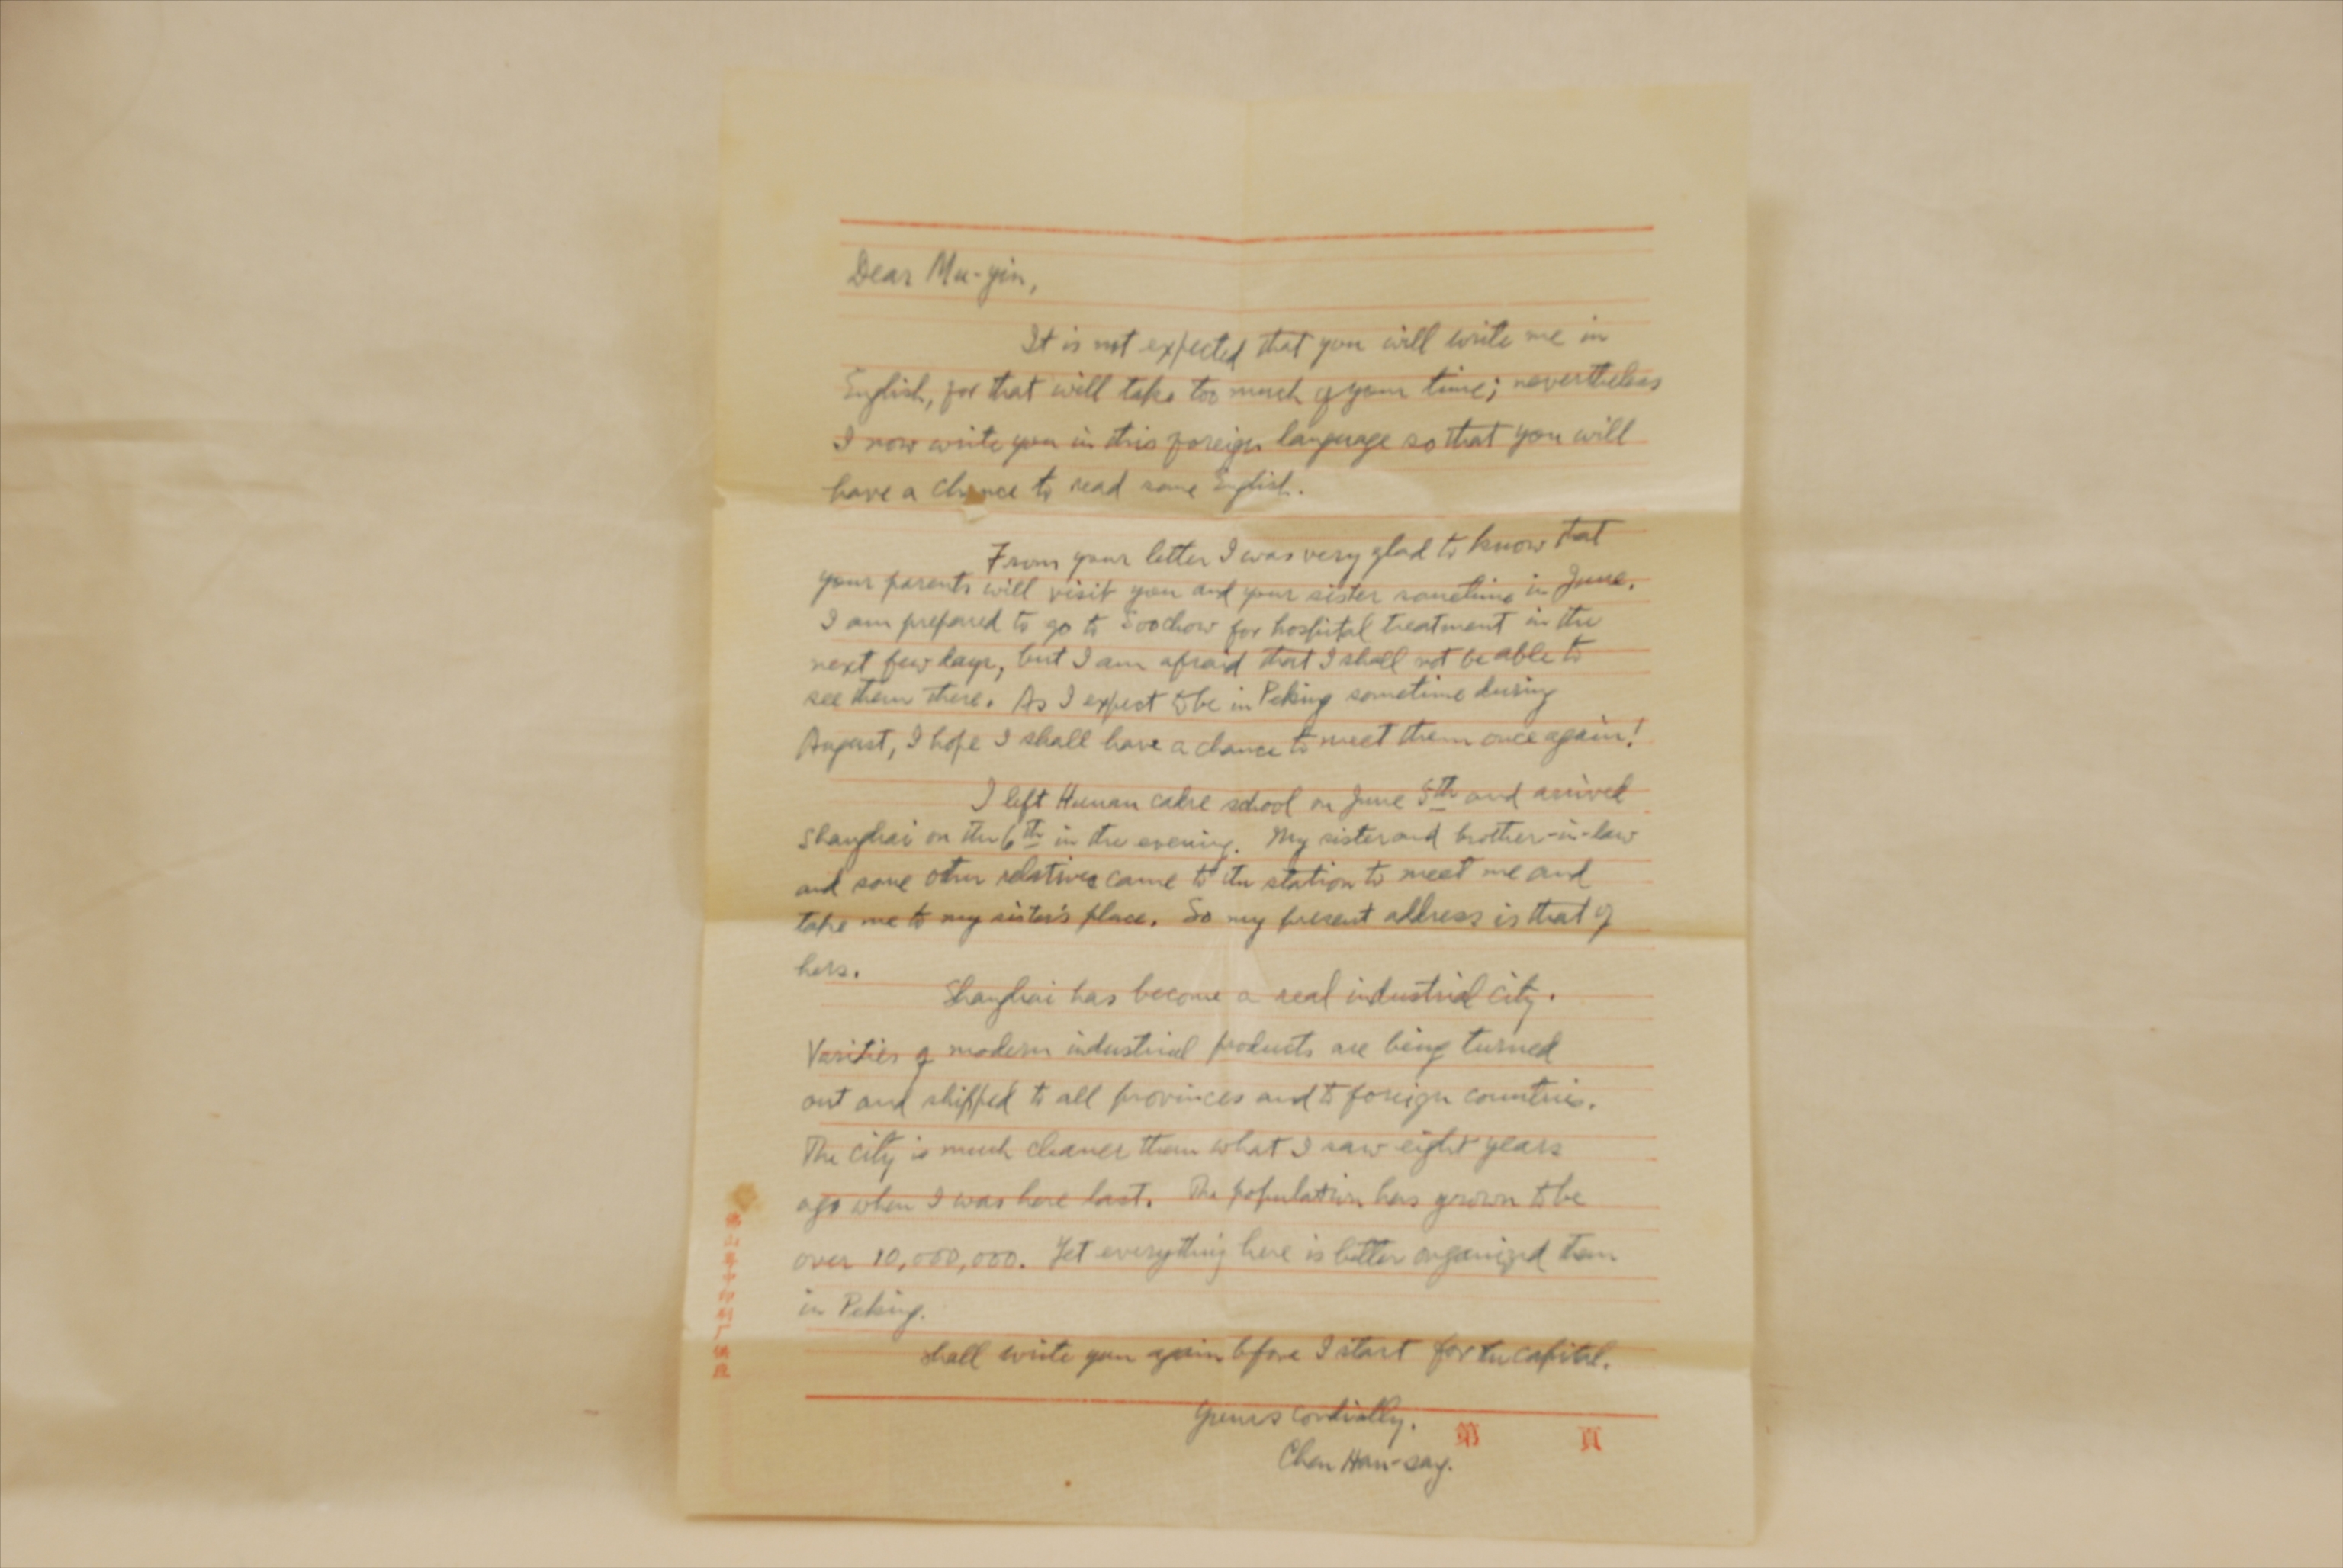 Dear Mu-yin,
It is not expected that you will write me in
English, for that will take too much of your time; nevertheless
I now write you in this foreign language so that you will
have a chance to read some English.
From your letter I was very glad to know that
your parents will visit you and your sister sometime in June.
I am prepared to go to Soochow for hospital treatment in the
next few days, but I am afraid that I shall not be able to
see them there. As I expect to be in Peking sometime during
August, I hope I shall have a chance to meet them once again!
I left Hunan cadre school on June 5th and arrived
Shanghai on the 6th in the evening. My sister and brother-in-law
and some other relatives came to the station to meet me and
take me to my sister's place. So my present address is that of
hers.
Shanghai has become a real industrial city.
Varities of modern industrial products are being turned
out and shipped to all provinces and to foreign countries.
The city is much cleaner than what I saw eight years
ago when I was here last. The population has grown to be
over 10,000,000. Yet everything here is better organized than
in Peking.
Shall write you again before I start for the capital.
Yours cordially,
Chen Han-seng.
第 頁
佛山粤中印刷厂供应